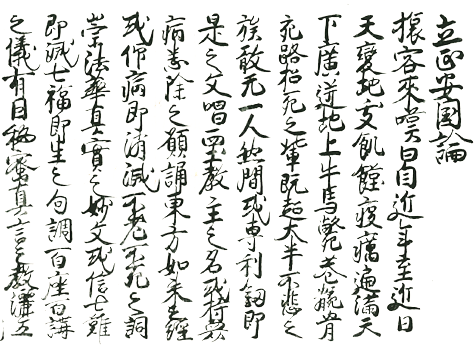 立正安国論
旅客來嘆曰自近年至近日
天變地夭飢饉疫癘遍満天
下廣迸地上牛馬斃巷骸骨
充路招死之輩既超大半不悲之
族敢无一人然間或専利釼即
是之文唱西土教主之名或持衆
病悉除之願誦東方如来之經
或仰病即消滅不老不死之詞
崇法華真實之妙文或信七難
即滅七福即生之句調百座百講
之儀有因秘密真言之教灑五